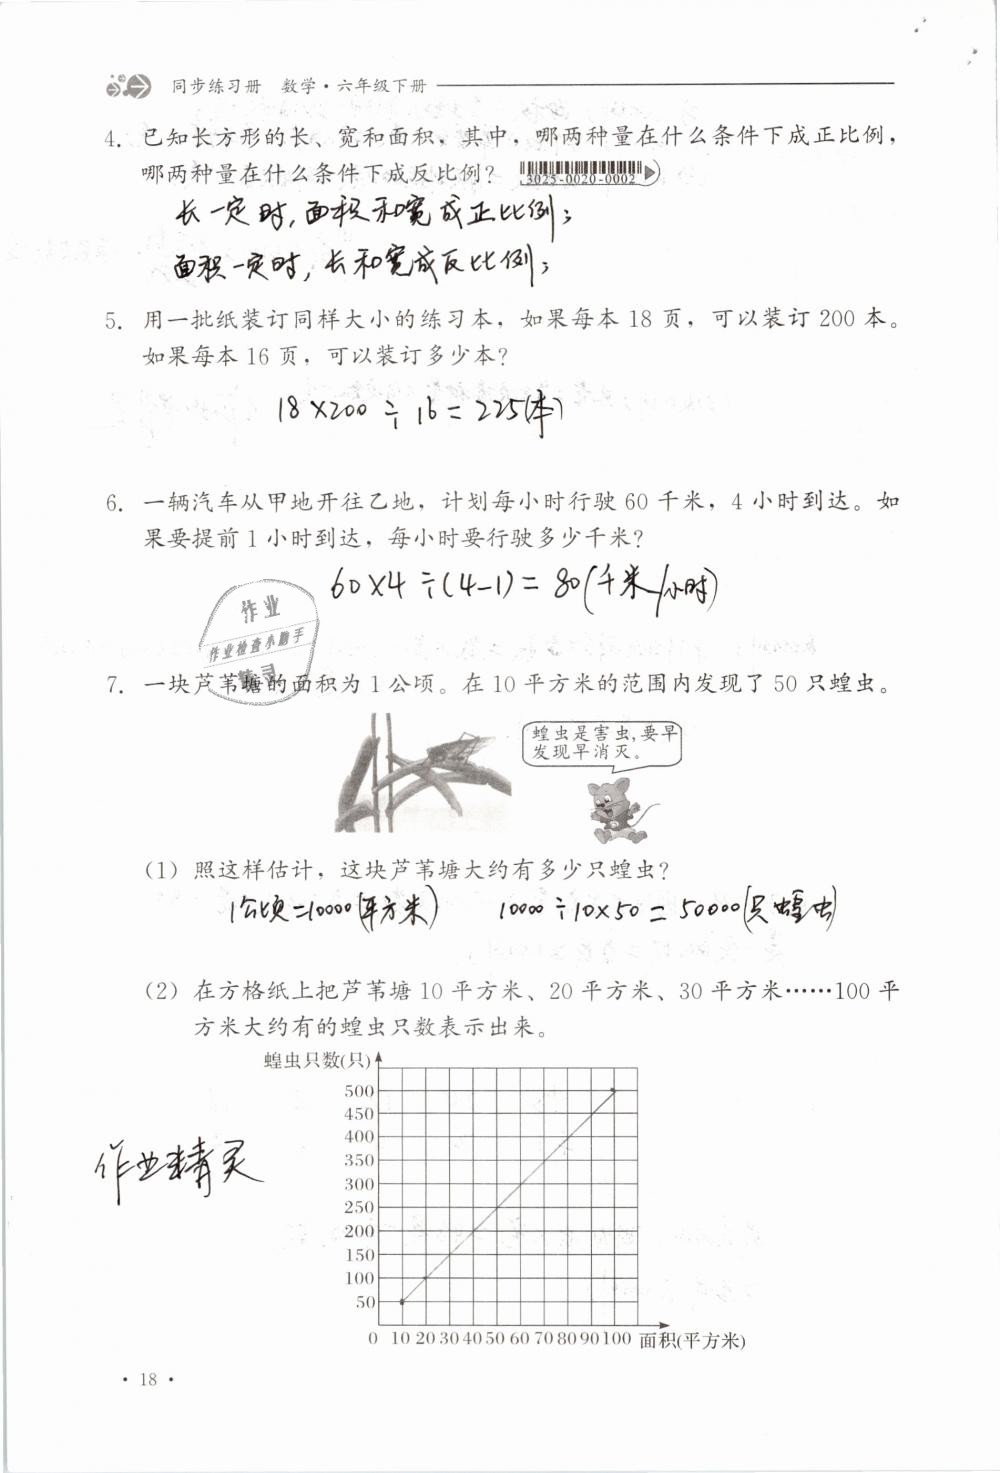 同步练习册 数学·六年级下册
4. 已知长方形的长、宽和面积，其中，哪两种量在什么条件下成正比例，
哪两种量在什么条件下成反比例？
3025-0020-0002
长一定时,面积和宽成正比例;
面积一定时,长和宽成反比例;
5. 用一批纸装订同样大小的练习本，如果每本 18 页，可以装订 200 本。
如果每本 16 页，可以装订多少本？
18×200÷16=225(本)
6. 一辆汽车从甲地开往乙地，计划每小时行驶 60 千米，4 小时到达。如
果要提前 1 小时到达，每小时要行驶多少千米？
60×4÷(4-1)=80(千米/小时)
作业
作业检查小助手
精灵
7. 一块芦苇塘的面积为 1 公顷。在 10 平方米的范围内发现了 50 只蝗虫。
蝗虫是害虫,要早
发现早消灭。
(1) 照这样估计，这块芦苇塘大约有多少只蝗虫？
1公顷=10000(平方米) 10000÷10×50=50000(只蝗虫)
(2) 在方格纸上把芦苇塘 10 平方米、20 平方米、30 平方米……100 平
方米大约有的蝗虫只数表示出来。
蝗虫只数(只)
500
450
400
350
300
250
200
150
100
50
0 10 20 30 40 50 60 70 80 90 100 面积(平方米)
作业精灵
· 18 ·